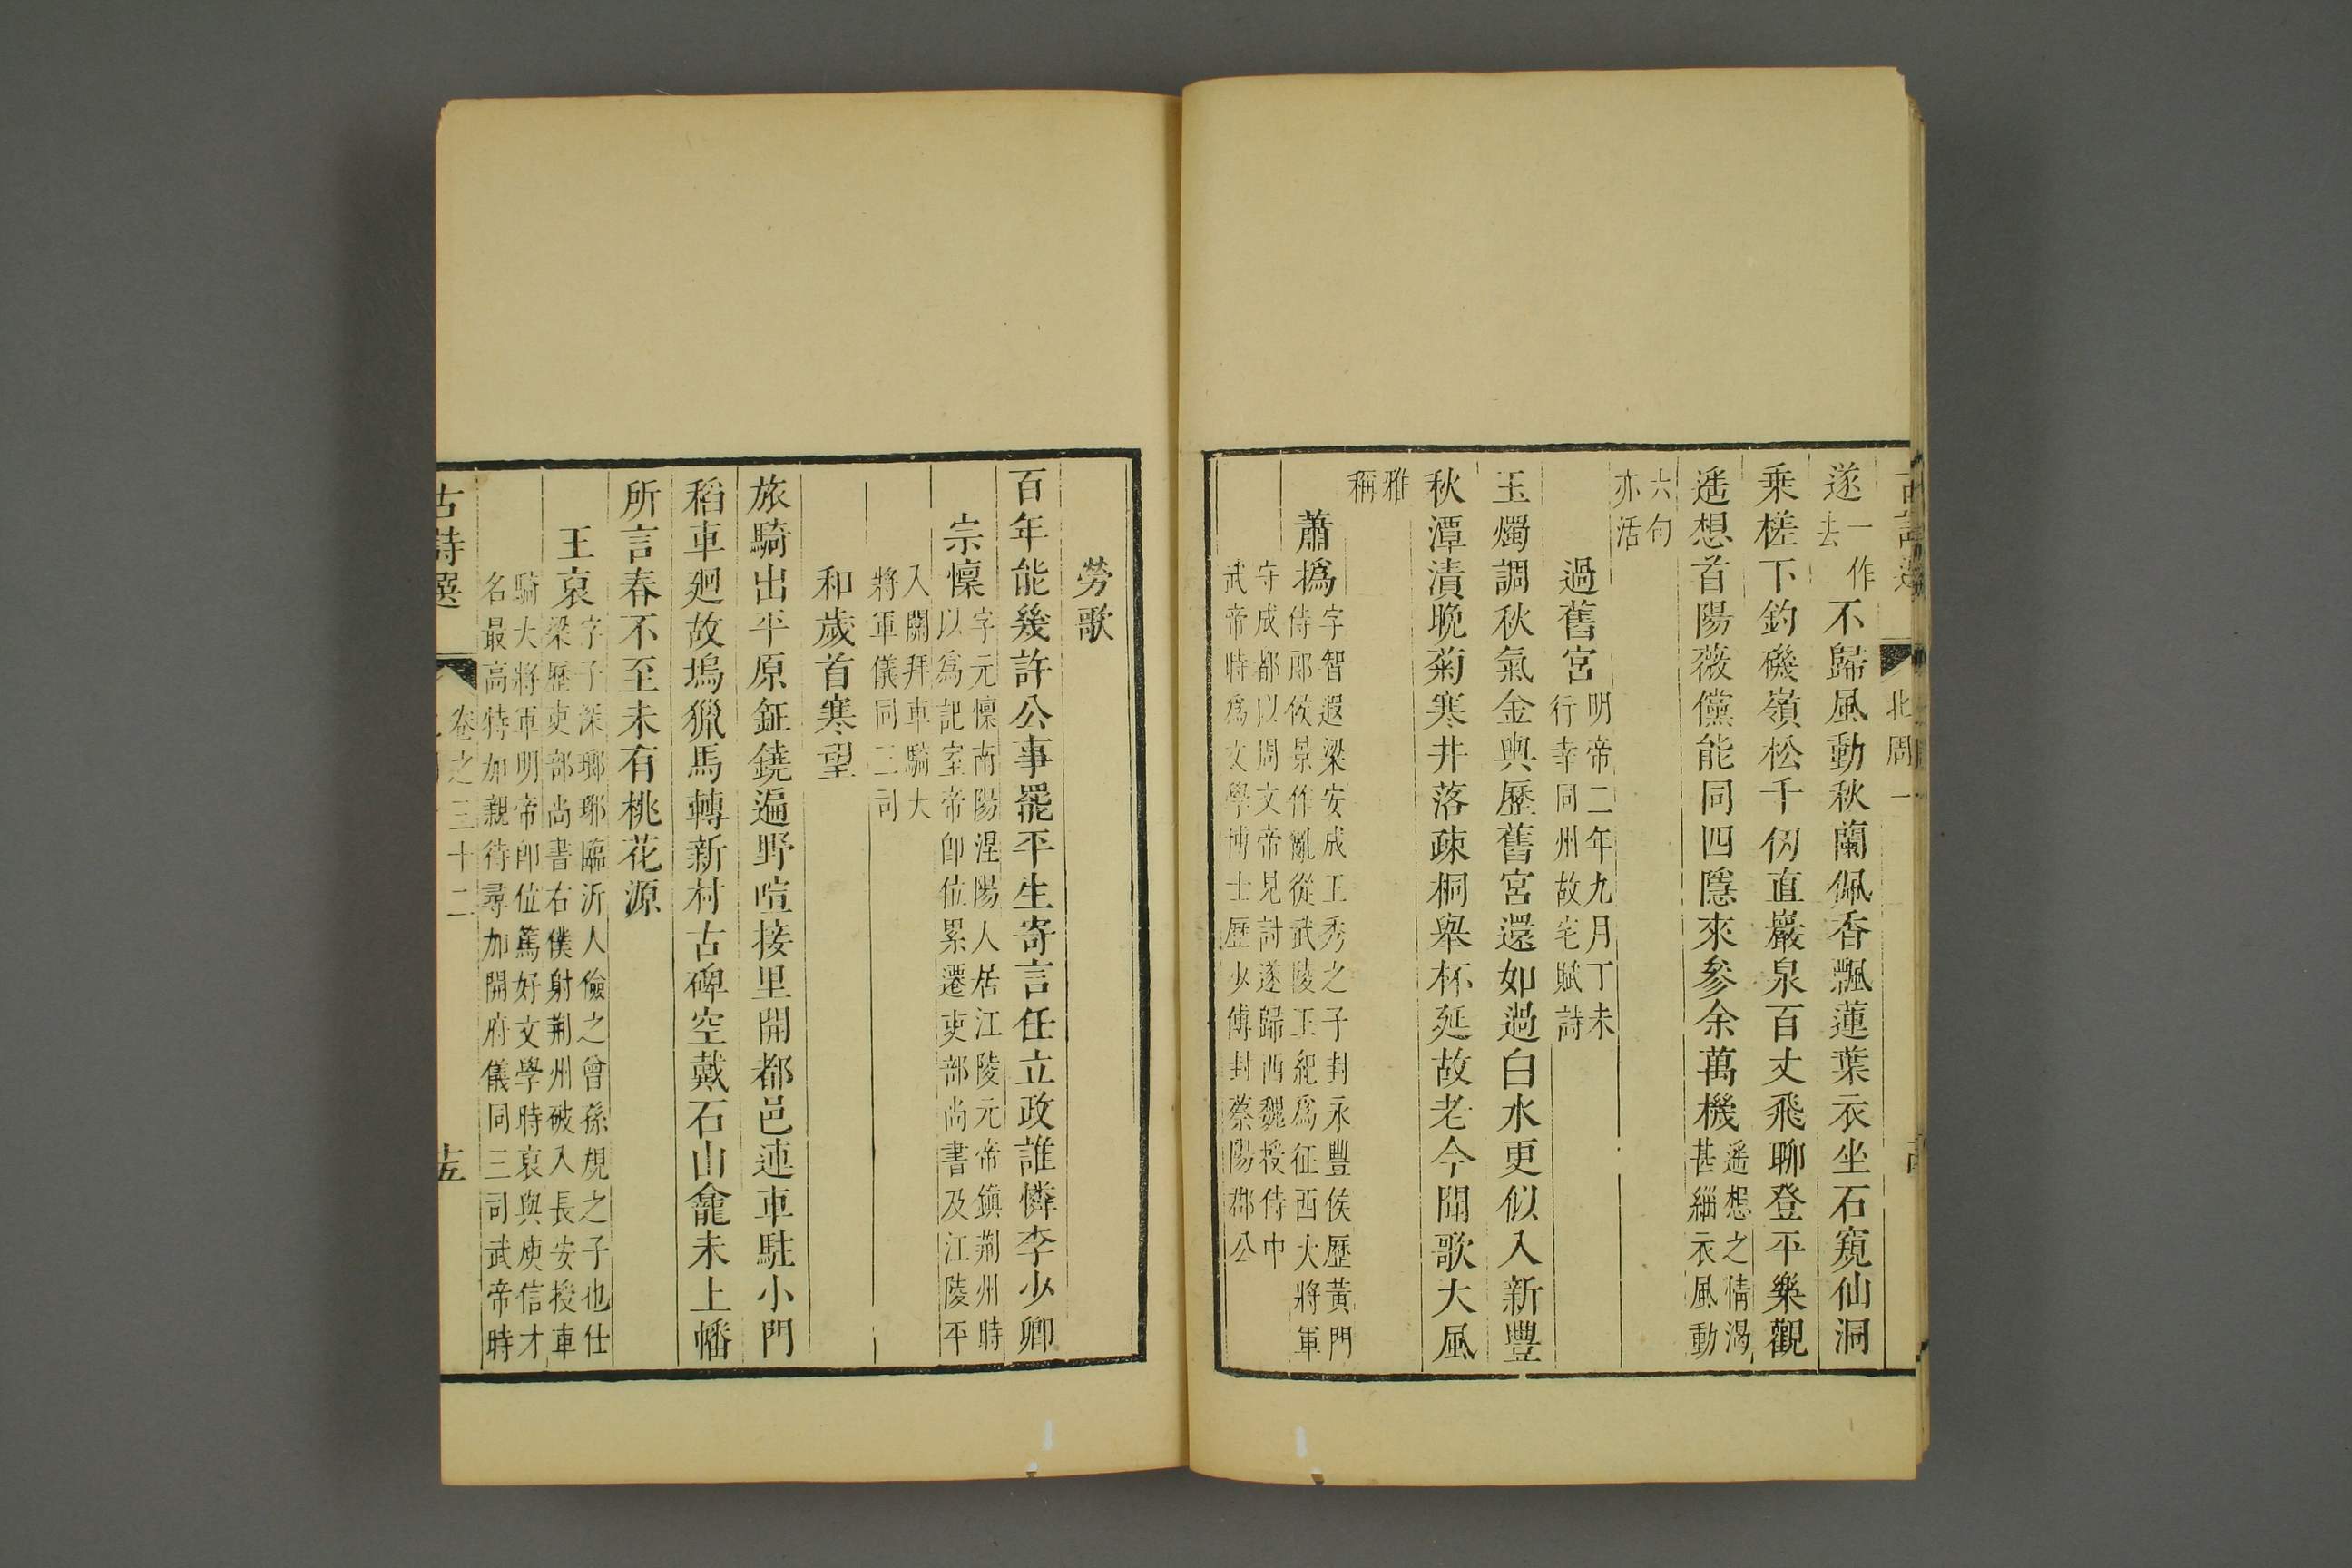 北周一
遂一作去不歸風動秋蘭佩香飄蓮葉衣坐石窺仙洞
乗槎下釣磯嶺松千仞直巖泉百丈飛聊登平樂觀
遙想首陽薇儻能同四隱來參余萬機遙想之情渴
甚緇衣風動
六句
亦活
過舊宮明帝二年九月丁未
行幸同州故宅賦詩
玉燭調秋氣金輿歷舊宮還如過白水更似入新豐
秋潭漬晚菊寒井落疎桐舉杯延故老今聞歌大風
雅
稱
蕭撝字智遐梁安成王秀之子封永豐侯歷黃門
侍郎侯景作亂從武陵王紀爲征西大將軍
守成都以周文帝見討遂歸西魏授侍中
武帝時爲文學博士歷少傅封蔡陽郡公
勞歌
百年能幾許公事罷平生寄言任立政誰憐李少卿
宗懍字元懍南陽涅陽人居江陵元帝鎮荆州時
以爲記室帝卽位累遷吏部尚書及江陵平
入關拜車騎大
將軍儀同三司
和歲首寒望
旅騎出平原鉦鐃遍野喧接里開都邑連車駐小門
稻車廻故塢獵馬轉新村古碑空戴石山龕未上幡
所言春不至未有桃花源
王裒字子深瑯琊臨沂人儉之曾孫規之子也仕
梁歷吏部尚書右僕射荆州破入長安授車
騎大將軍明帝卽位篤好文學時裒與庾信才
名最高特加親待尋加開府儀同三司武帝時
古詩選
卷之三十二